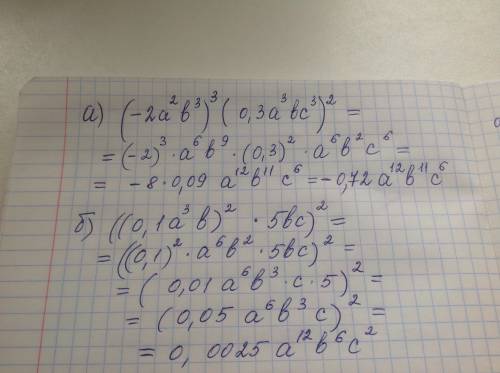 а) (-2a²b³)³(0,3a³bc³)² =
= (-2)³ · a⁶b⁹ · (0,3)² · a⁶b²c⁶ =
= -8 · 0,09 a¹²b¹¹c⁶ = -0,72a¹²b¹¹c⁶
б) ((0,1a³b)² · 5bc)² =
= ((0,1)² · a⁶b² · 5bc)² =
= (0,01a⁶b³ · c · 5)² =
= (0,05 a⁶b³c)² =
= 0,0025a¹²b⁶c²